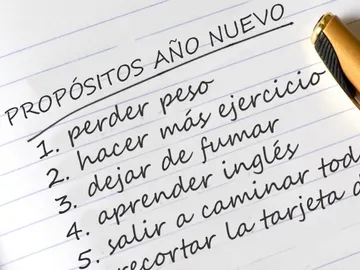 PROPÓSITOS AÑO NUEVO
1. perder peso
2. hacer más ejercicio
3. dejar de fumar
4. aprender inglés
5. salir a caminar tod
recortar la tarjeta d